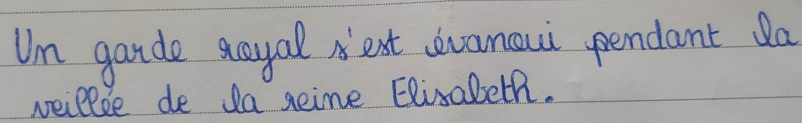 Un garde royal s'est évanoui pendant la
veillée de la reine Elisabeth.